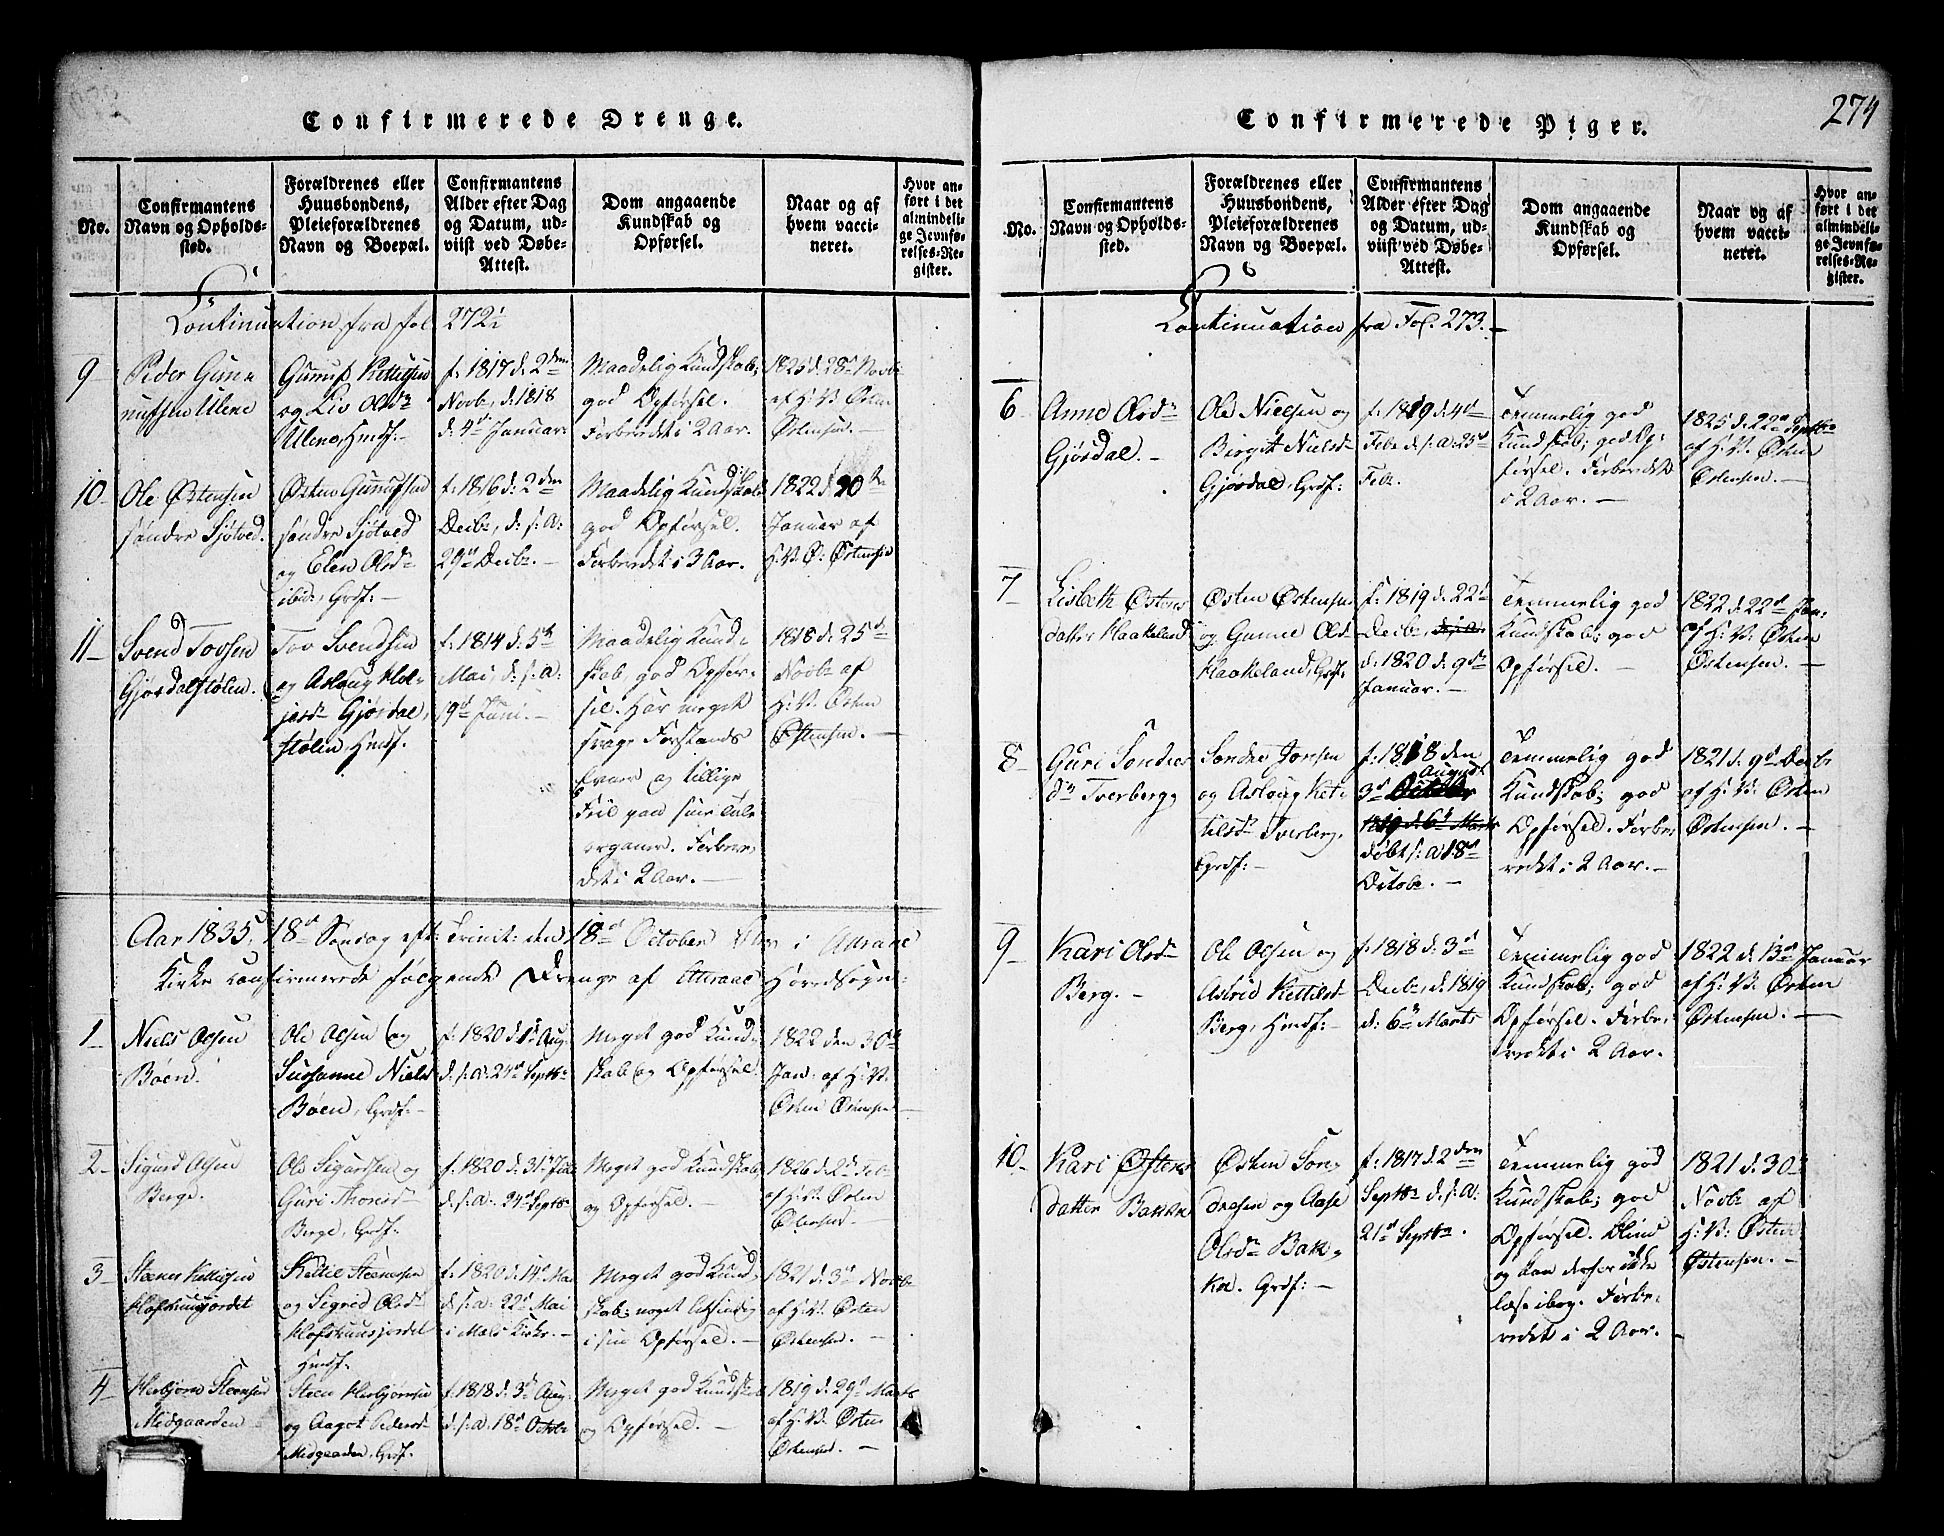 Confirmerede Drenge.
No.
Confirmantens
Navn og Opholds-
sted.
Forældrenes eller
Huusbondens,
Pleieforældrenes
Navn og Boepæl.
Confirmantens
Alder efter Dag
og Datum, ud-
viist ved Døbe-
Attest.
Dom angaaende
Kundskab og
Opførsel.
Naar og af
hvem vacci-
neret.
Hvor an-
ført i det
almindeli-
ge Jevnfø-
relses-Re-
gister.
Continuation fra fol 272½
9
Peder Gun-
nufsen Ulene
Gunuf Kettilsen
og Liv Olsd.
Ulene, Hmdf.
f: 1817 d: 2den
Novbr, d: 1818
d: 4de Januar.
Maadelig Kundskab;
god Opførsel.
Forberedt i 2 Aar.
1825 d: 28de Novbr
af H: V: Østen
Østensen.
10
Ole Østensen
søndre Sjøtved.
Østen Gunufsen
søndre Sjøtved
og Elen Olsd.
ibid:, Grdf:
f: 1816 d: 2den
Decbr, d: s: A:
29de Decbr.
Maadelig Kundskab
god Opførsel.
Forberedt i 3 Aar.
1822 d 20de
Januar af
H: V: Ø: Østensen
11
Svend Tovsen
Gjøsdalstølen.
Tov Svendsen
og Aslaug Hol-
jesd. Gjøsdal,
stølen, Hmdf.
f: 1814 d: 5te
Mai, d: s: A:
19de Juni.
Maadelig Kund-
skab, god Opfør-
sel. Har meget
svage Forstands
Evner og tillige
Feil paa sine Tale
organer. Forbere,
det i 2 Aar.
1818 d: 25de
Novbr af
H: V: Østen
Østensen.
Aar 1835, 18de Søndag eft: Trinit: den 18de October i Attraae
Kirke confirmerede følgende Drenge af Attraae Hovedsogn:
1
Niels Olsen
Bøen.
Ole Olsen og
Susanne Niels
Bøen, Grdf:
f: 1820 d: 1ste Aug.
d: s: a: 24de Septbr
Meget god Kund-
skab og Opførsel.
1822 den 30te
Jan: af H: V:
Østen Østensen
2
Sigurd Olsen
Berge.
Ole Sigurdsen og
Guri Thorsd
Berge, Grdf:
f: 1820 d: 31te
d: s: a: 24de Septbr
Meget god Kundskab
og Opførsel.
1826 d: 2de
af H: V: Østen
Østensen
3
Steener Kettilsen
Hofshuusjordet
Kettil Steenersen
og Sigrid Olsd.
Hofshuusjordet
Hmdf.
f: 1820 d: 14de Mai
d: s: a: 22de Mai
i Mæls Kirke.
Meget god Kund,
skab; noget letsindig
i sin Opførsel.
1821 d: 3de Novbr
af H: V: Østen
Østensen
4
Herbjørn Steensen
Midgaarden
Steen Herbjørnsen
og Aagot Pedersd.
Midgaarden, Grdf.
f: 1818 d: 3de Aug.
d: s: a: 18de Octbr
Meget god Kundskab
og Opførsel.
1819 d: 29de Marts
af H: V: Østen
Østensen.
Confirmerede Piger.
274
No.
Confirmantens
Navn og Opholds-
sted.
Forældrenes eller
Huusbondens,
Pleieforældrenes
Navn og Boepæl.
Confirmantens
Alder efter Dag
og Datum, ud-
viist ved Døbe-
Attest.
Dom angaaende
Kundskab og
Opførsel.
Naar og af
hvem vacci-
neret.
Hvor an-
ført i det
almindeli-
ge Jevnfø-
relses-Re-
gister.
Continuation fra Fol. 273.
6
Anne Olsd.
Gjøsdal.
Ole Nielsen og
Birgit Nielsd
Gjøsdal, Grdf:
f: 1819 d: 4de
Febr. d. s: a: 25de
Febr.
Temmelig god
Kundskab; god Op-
førsel. Forberedt
i 2 Aar.
1825 d: 22de Septbr
af H: V: Østen
Østensen.
7
Lisbeth Østens
datter Haakeland
Østen Østensen
og Gunne Olsd
Haakeland, Grdf.
f: 1819 d: 22de
Decbr, d: s: a:
d: 1820 d: 9de
Januar.
Temmelig god
Kundskab; god
Opførsel.
1822 d: 22de Jan:
af H: V: Østen
Østensen.
8
Guri Sondres
dr Tverberg,
Sondre Jonsen
og Aslaug Ket-
tilsdr Tverberg,
Grdf:
f: 1818 den
August
3de October
1819 d: 6te Marts
døbt s: a: 18de
Octobr.
Temmelig god
Kundskab; god
Opførsel. Forbe,
redt i 2 Aar.
1821 d: 9de Decbr
af H: V: Østen
Østensen.
9
Kari Olsd.
Berg.
Ole Olsen og
Astrid Kettilsd
Berg, Hmdf:
f: 1818 d: 3de
Decbr, d: 1819
d: 6te Marts
Temmelig god
Kundskab; god
Opførsel. Forbe,
redt i 2 Aar.
1822 d: 13de Januar
af H: V: Østen
Østensen.
10
Kari Østens
datter Bakka
Østen Son,
dresen og Aase
Olsdr Bak,
ka. Grdf:
f: 1817 d: 2den
Septbr d: s: A:
21de Septbr.
Temmelig god
Kundskab; god
Opførsel. Blind
og kan derfor ikke
læse i bog. Forbe,
redt i 2 Aar.
1821 d: 30te
Novbr af
H: V: Østen
Østensen.